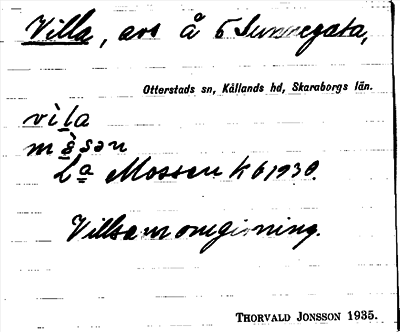 Villa, avs å 5 Sunnegata,
Otterstads sn, Kållands hd, Skaraborgs län.
vìla
mò̱sən
La Mossen k 6 1930.
Villsam omgivning.
THORVALD JONSSON 1935.